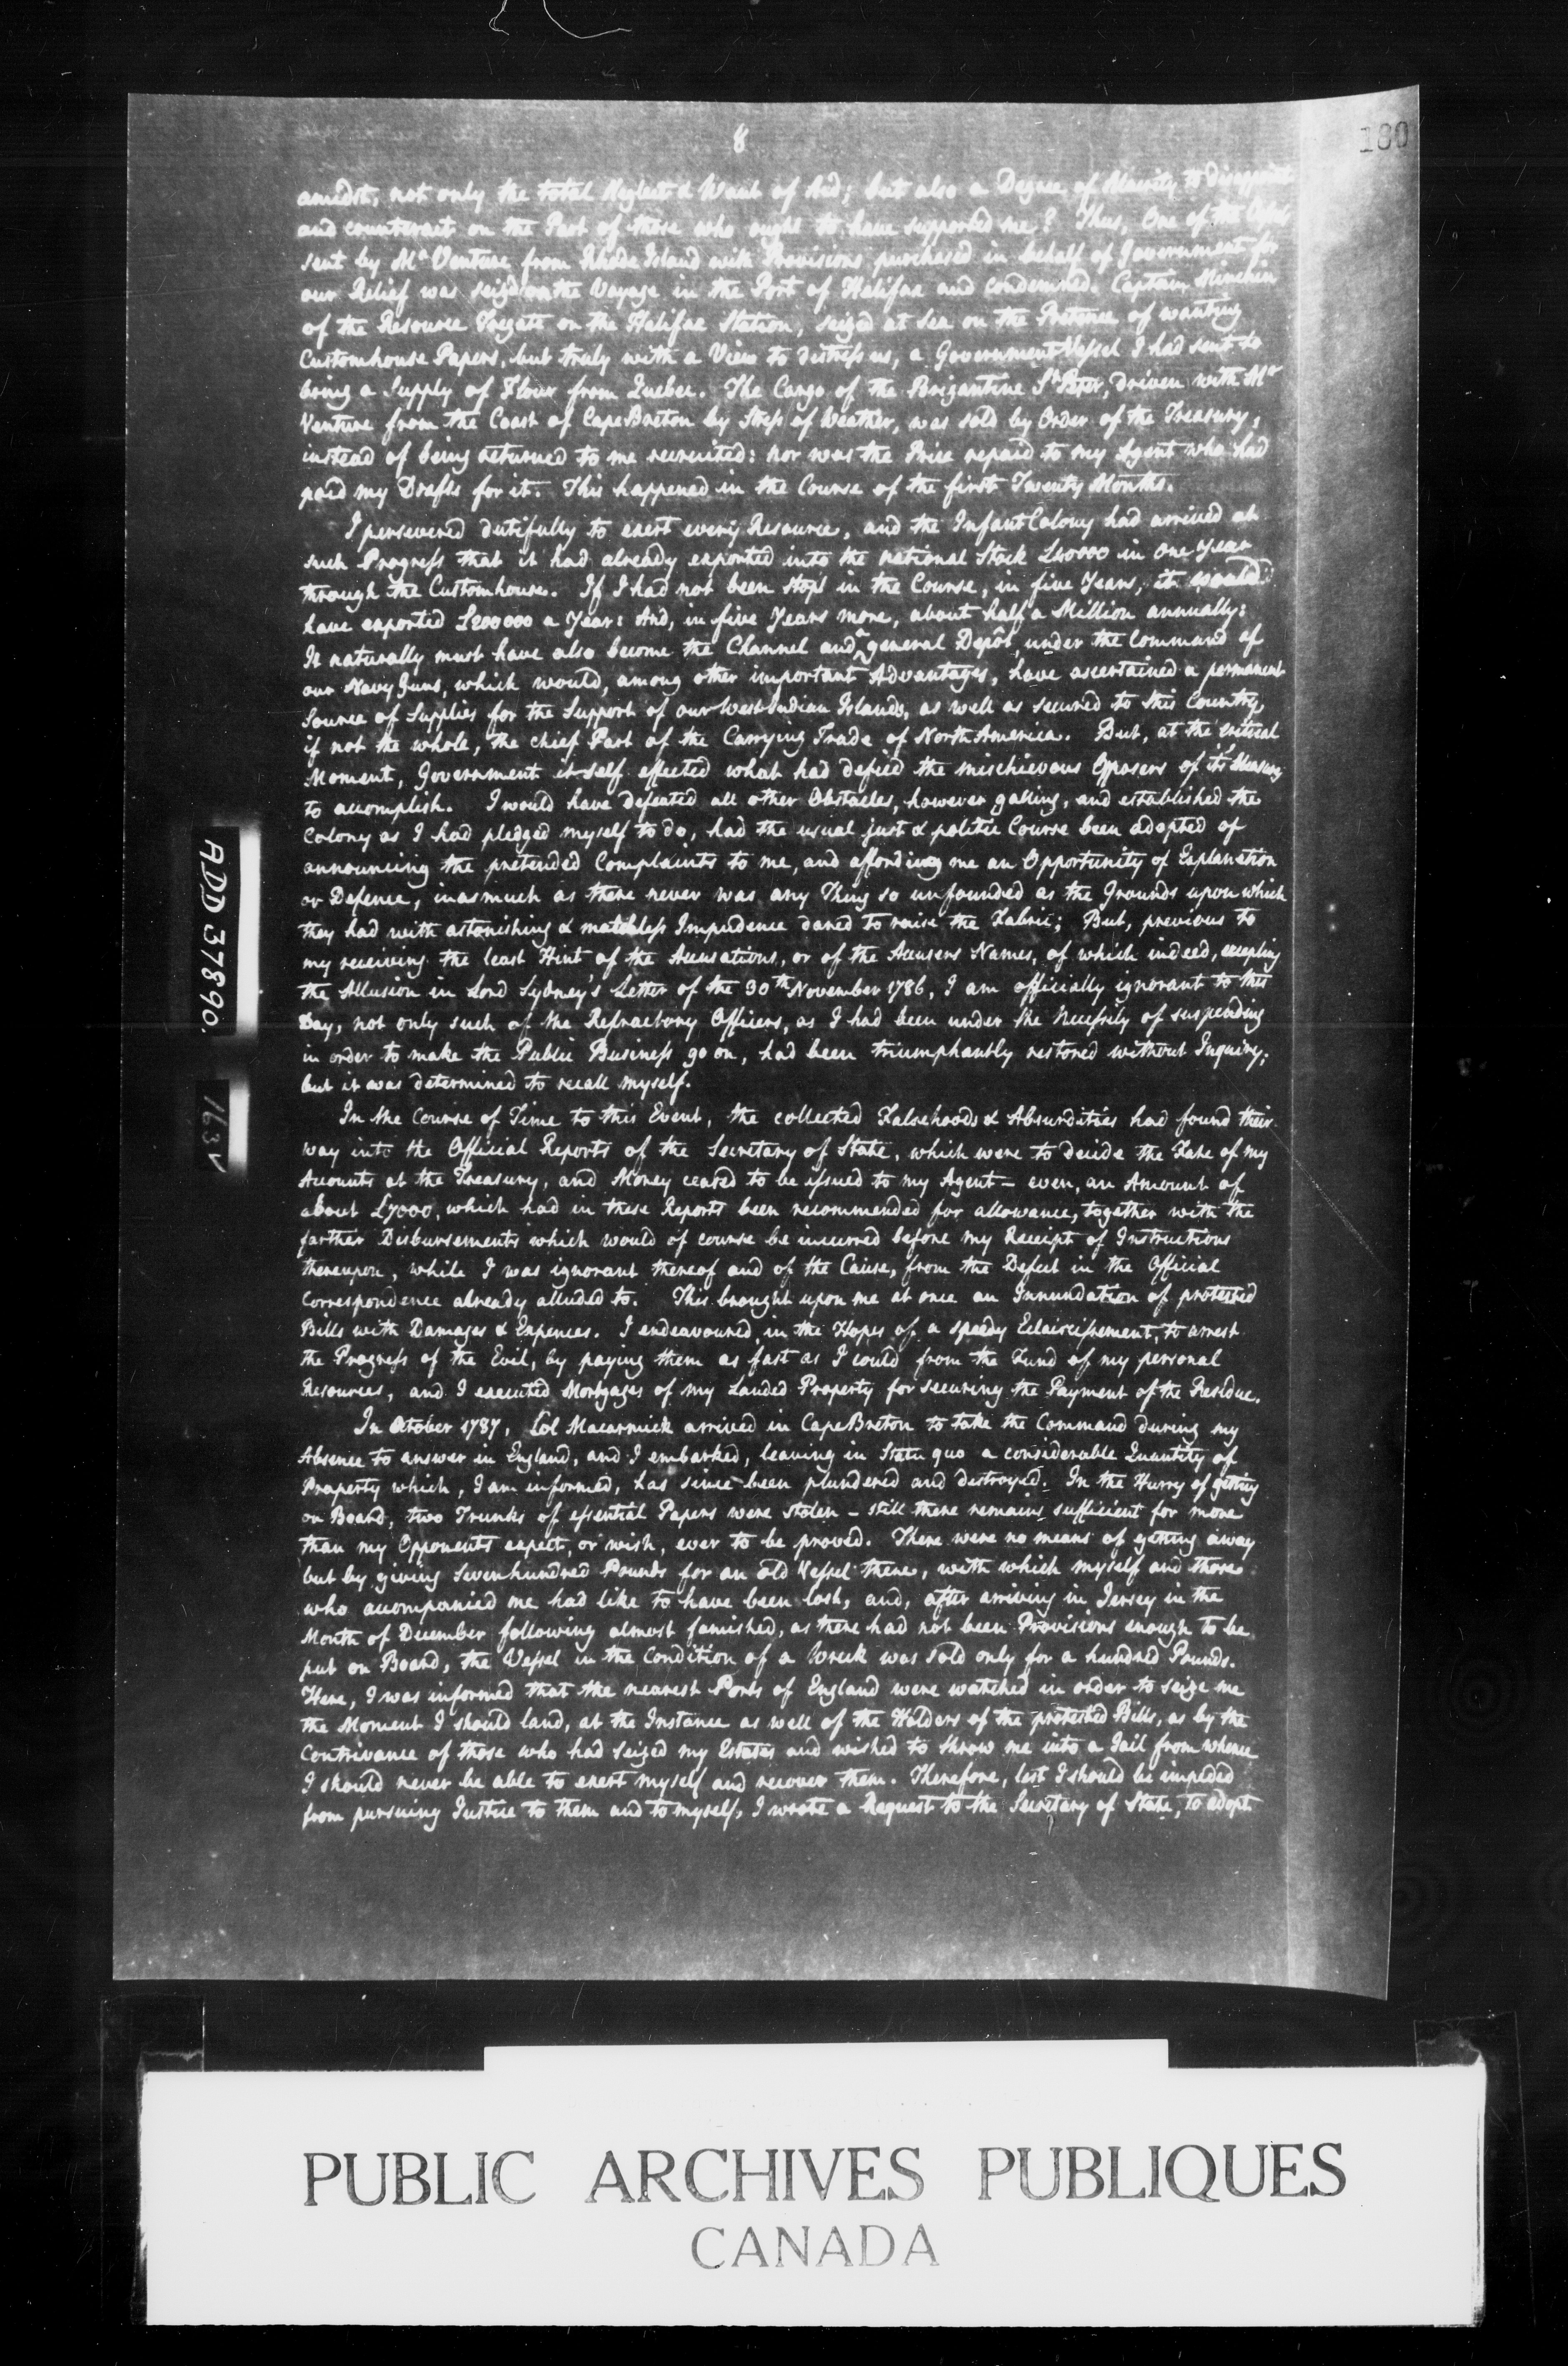 8
180
amidst, not only the total Neglect & Want of Aid; but also a Degree of Alacrity to disappoint
and counteract on the Part of those who ought to have supported me? Thus, One of the
sent by Mr Venture from Rhode Island with Provisions purchased in behalf of Government for
our Relief was seized on the Voyage in the Port of Halifax and condemned. Captain Minchin
of the Resource Fregate on the Halifax Station, seized at Sea on the Pretence of wanting
Customhouse Papers, but truly with a View to distress us, a Government Vessel I had sent to
bring a Supply of Flour from Quebec. The Cargo of the Brigantine St Peter, driven with Mr
Venture from the Coast of Cape Breton by Stress of Weather, was sold by Order of the Treasury,
instead of being returned to me recruited: nor was the Price repaid to my Agent who had
paid my Drafts for it. This happened in the Course of the first Twenty Months.
I persevered dutifully to exert every Resource, and the Infant Colony had arrived at
such Progress that it had already exported into the national Stock £40000 in one Year
through the Customhouse. If I had not been stopt in the Course, in five Years, it would
have exported £200000 a Year: And, in five Years more, about half a Million annually:
It naturally must have also become the Channel and a general Depôt, under the Command of
our Navy Guns, which would, among other important Advantages, have ascertained a permanent
Source of Supplies for the Support of our West Indian Islands, as well as secured to this Country,
if not the whole, the chief Part of the Carrying Trade of North America. But, at the critical
Moment, Government it self effected what had defied the mischievous Opposers of it's Measures
to accomplish. I would have defeated all other Obstacles, however galling, and established the
Colony as I had pledged myself to do, had the usual just & politic Course been adopted of
announcing the pretended Complaints to me, and affording me an Opportunity of Explanation
or Defence, inasmuch as there never was any Thing so unfounded as the Grounds upon which
they had with astonishing & matchless Impudence dared to raise the Fabric; But, previous to
my receiving the least Hint of the Accusations, or of the Accusers Names, of which indeed, excepting
the Allusion in Lord Sydney's Letter of the 30th November 1786, I am officially ignorant to this
Day, not only such of the Refractory Officers, as I had been under the Necessity of suspending
in order to make the Public Business go on, had been triumphantly restored without Inquiry;
but it was determined to recall myself.
In the Course of Time to this Event, the collected Falsehoods & Absurdities had found their
way into the Official Reports of the Secretary of State, which were to decide the Fate of my
Accounts at the Treasury, and Money ceased to be issued to my Agent — even, an Amount of
about £7000, which had in these Reports been recommended for allowance, together with the
farther Disbursements which would of course be incurred before my Receipt of Instructions
thereupon, while I was ignorant thereof and of the Cause, from the Defect in the Official
Correspondence already alluded to. This brought upon me at once an Innundation of protested
Bills with Damages & Expences. I endeavoured, in the Hopes of a speedy Eclaircissement, to arrest
the Progress of the Evil, by paying them as fast as I could from the Fund of my personal
Resources, and I executed Mortgages of my Landed Property for securing the Payment of the Residue.
In October 1787, Col Macarmick arrived in Cape Breton to take the Command during my
Absence to answer in England, and I embarked, leaving in Statu quo a considerable Quantity of
Property which, I am informed, has since been plundered and destroyed. In the Hurry of getting
on Board, two Trunks of essential Papers were stolen — still there remains sufficient for more
than my Opponents expect, or wish, ever to be proved. There were no means of getting away
but by giving Sevenhundred Pounds for an old Vessel there, with which myself and those
who accompanied me had like to have been lost, and, after arriving in Jersey in the
Month of December following almost famished, as there had not been Provisions enough to be
put on Board, the Vessel in the Condition of a Wreck was sold only for a hundred Pounds.
Here, I was informed that the nearest Ports of England were watched in order to seize me
the Moment I should land, at the Instance as well of the Holders of the protested Bills, as by the
Contrivance of those who had seized my Estates and wished to throw me into a Jail from whence
I should never be able to exert myself and recover them. Therefore, lest I should be impeded
from pursuing Justice to them and to myself, I wrote a Request to the Secretary of State, to adopt
ADD 37890.
163 v
PUBLIC ARCHIVES PUBLIQUES
CANADA